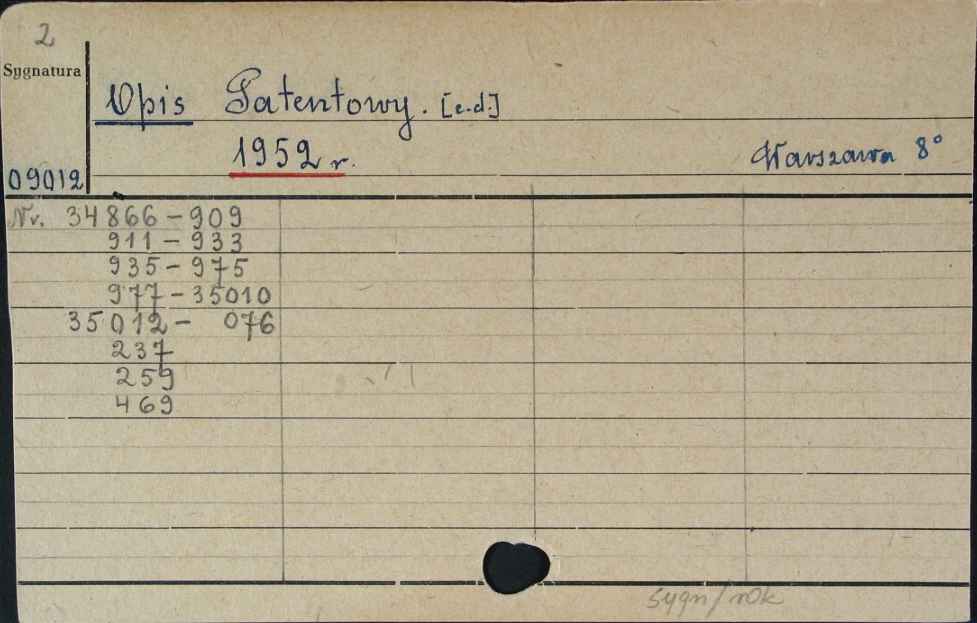 2
Sygnatura
Opis Patentowy. [c.d.]
1952 r.
Warszawa 8°
09012
Nr. 34866 - 909
911 - 933
935 - 975
977 - 35010
35012 - 076
237
259
469
sygn/rok